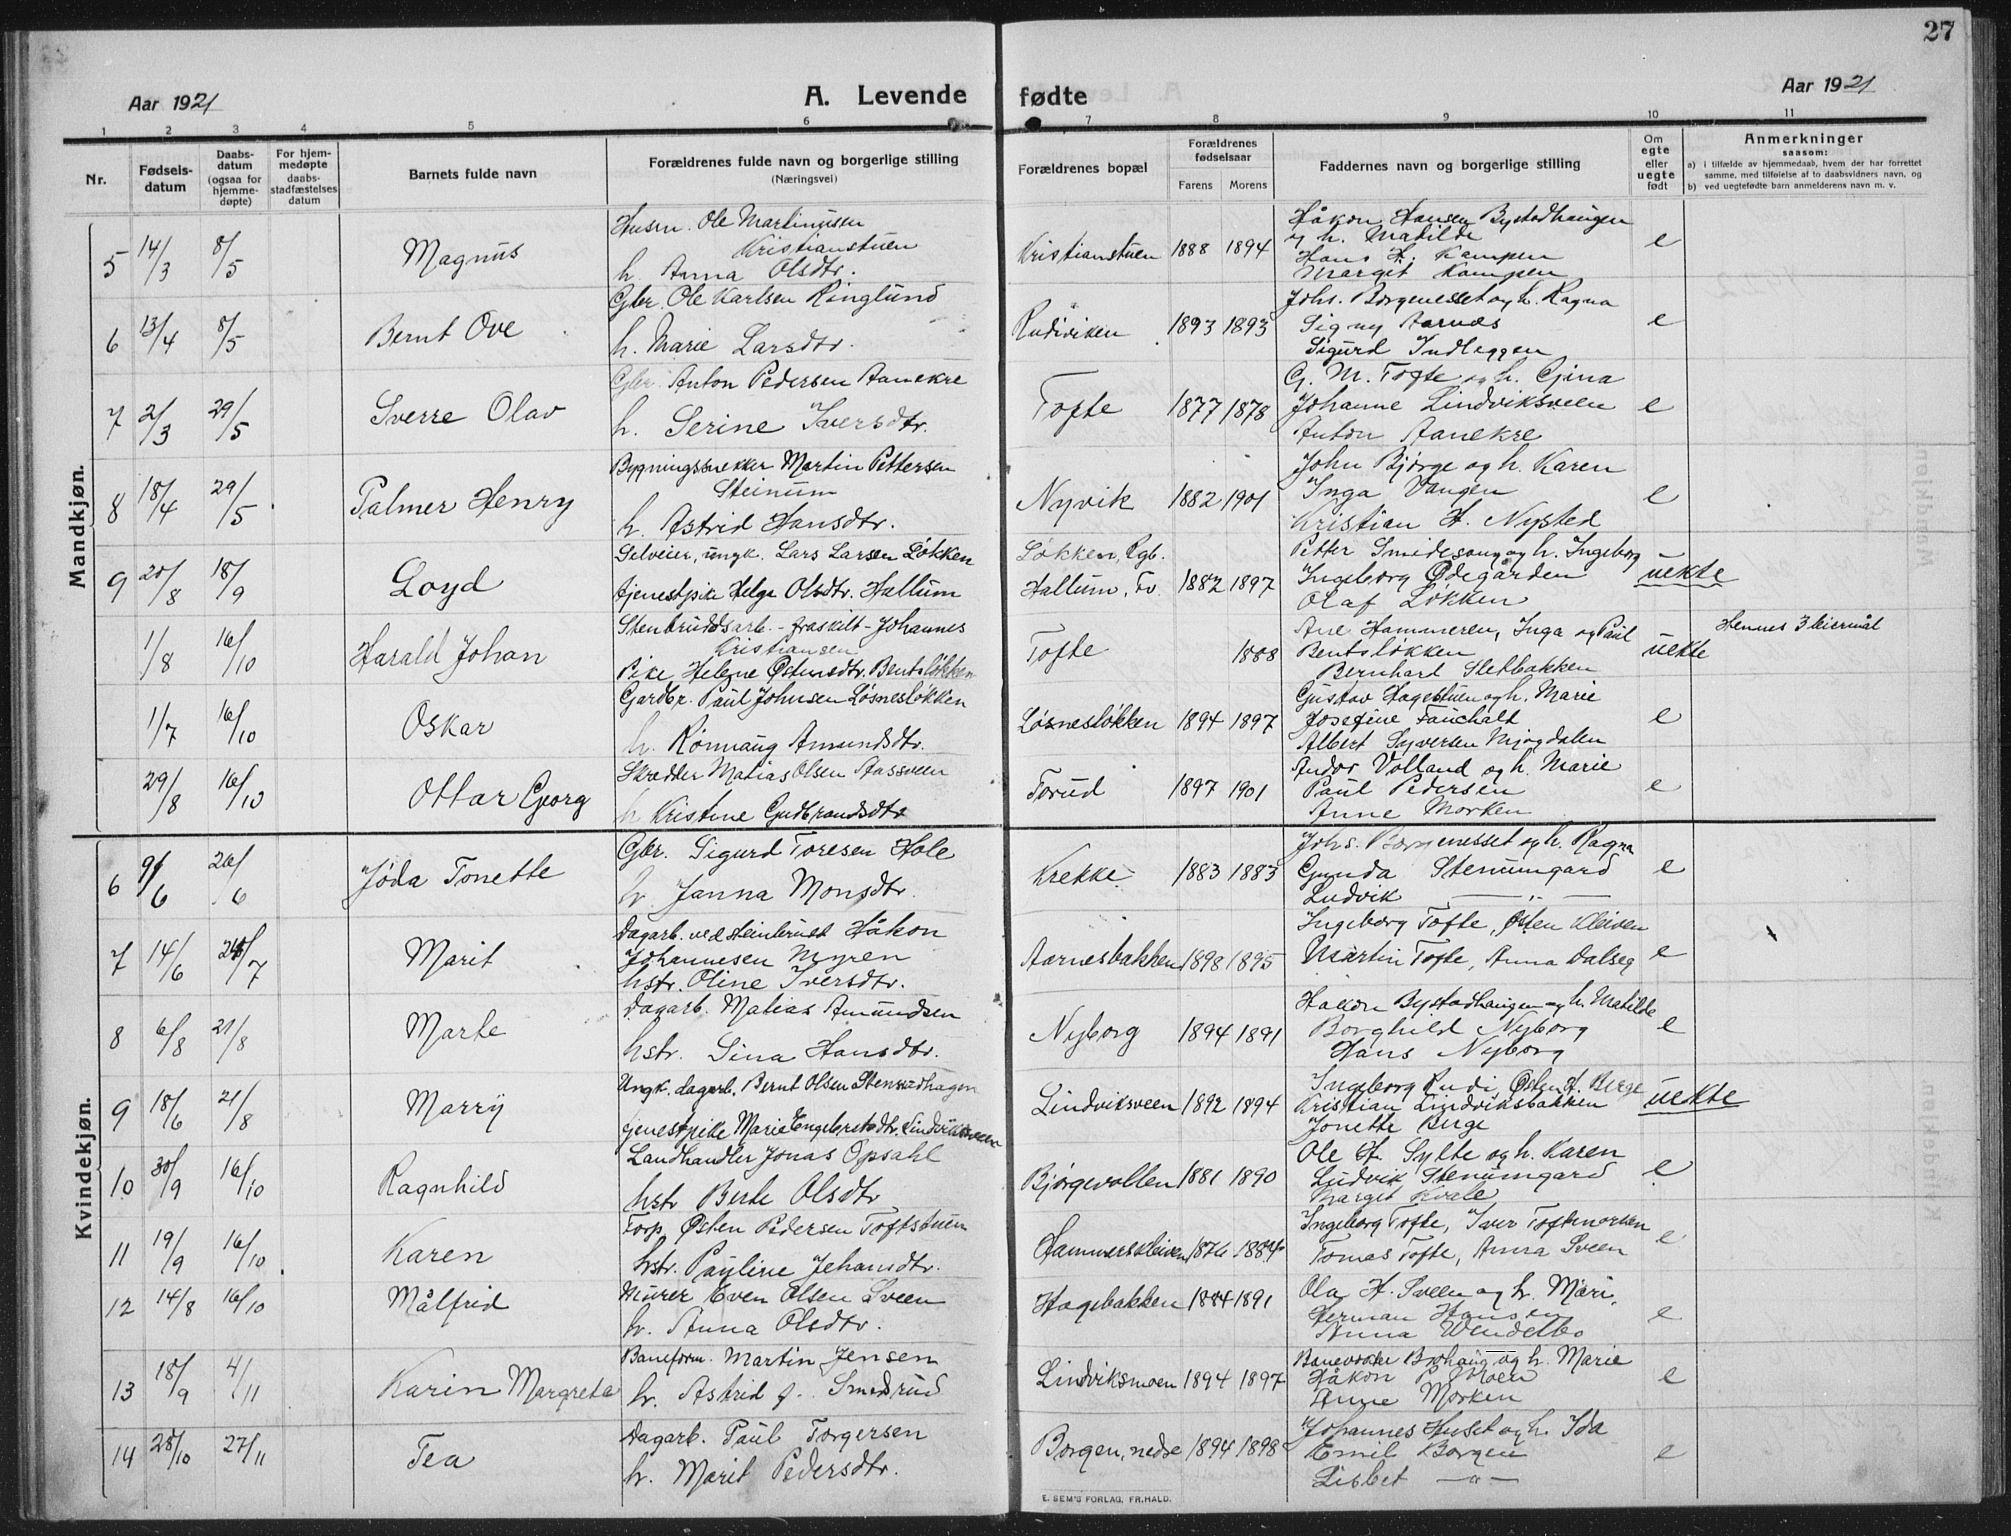 27
Aar 1921
A. Levende
fødte
Aar 1921
1 2 3 4 5 6 7 8 9 10 11
Nr.
Fødselsdatum
Daabsdatum (ogsaa for hjemmedøpte)
For hjemmedøpte daabsstadfæstelses datum
Barnets fulde navn
Forældrenes fulde navn og borgerlige stilling
(Næringsvei)
Forældrenes bopæl
Forældrenes fødselsaar
Farens Morens
Faddernes navn og borgerlige stilling
Om egte eller uegte født
Anmerkninger
saasom:
a) i tilfælde av hjemmedaab, hvem der har forrettet samme, med tilføielse af to daabsvidners navn, og
b) ved uegtefødte barn anmelderens navn m. v.
Mandkjøn.
5 14/3 8/5 Magnus
Husm. Ole Martinussen
Kristianstuen
h. Anna Olsdtr.
Kristianstuen 1888 1894
Håkon Hansen Bystadhaugen
og h. Matilde
Hans H. Kampen
Marget Kampen
e
6 13/4 8/5 Bernt Ove
Gbr. Ole Karlsen Ringlund
h. Marie Larsdtr.
Rudiviken 1893 1893
Johs. Borgenesset og h. Ragna
Signy Aarnes
Sigurd Indleggen
e
7 2/3 29/5 Sverre Olav
Gbr. Anton Pedersen Aanekre
h. Serine Iversdtr.
Tofte 1877 1878
G. M. Tofte og h. Gina
Johanne Lindviksveen
Anton Aanekre
e
8 18/4 29/5 Palmer Henry
Bygningssnekker Martin Pettersen
Steinum
h. Astrid Hansdtr.
Nyvik 1882 1901
John Bjørge og h. Karen
Inga Vangen
Kristian H. Nysted
e
9 20/8 18/9 Loyd
Selveier, ungk. Lars Larsen Løkken
tjenestpike Helga Olsdtr. Hallum
Løkken, Rgb.
Hallum, Fv. 1882 1897
Petter Smidesang og h. Ingeborg
Ingeborg Ødegården
Olaf Løkken
uekte
1/8 16/10 Harald Johan
Stenbruddsarb. - fraskilt - Johannes
Kristiansen
Pike Helene Østensdtr. Bentsløkken
Tofte 1888
Ane Hammeren, Inga og Paul
Bentsløkken
Bernhard Sletbakken
uekte
Hennes 3 leiermål
1/7 16/10 Oskar
Gardbr. Paul Johnsen Løsnesløkken
h. Rønnaug Amundsdtr.
Løsnesløkken 1894 1897
Gustav Hagestuen og h. Marie
Josefine Fauchalt
Albert Syversen Mjøgdalen
e
29/8 16/10 Ottar Georg
Skredder Matias Olsen Aassveen
h Kristine Gudbrandsdtr
Torud 1897 1901
Andor Volland og h. Marie
Paul Pedersen
Anne Morken
e
Kvindekjøn.
6 9/6 26/6 Jøda Tonette
Gbr. Sigurd Toresen Hole
h. Janna Monsdtr.
Krekke 1883 1883
Johs. Borgenesset og h. Ragna
Gunda Stenumgard
Ludvik — " —
e
7 14/6 24/7 Marit
Dagarb. ved steinbrudt Håkon
Johannesen Myren
hstr. Oline Iversdtr.
Aarnesbakken 1898 1895
Ingeborg Tofte, Østen Kleiven
Martin Tofte, Anna Dalseg
e
8 6/8 21/8 Marte
Dagarb. Matias Amundsen
hstr. Sina Hansdtr.
Nyborg 1894 1891
Håkon Bystadhaugen og h. Matilde
Borghild Nyborg
Hans Nyborg
e
9 18/6 21/8 Marry
Ungk. dagarb. Bernt Olsen Stensrudhagen
tjenestpike Marie Engebretsdtr. Lindviksveen
Lindviksveen 1892 1894
Ingeborg Rudi, Østen H. Berge
Kristian Lindviksbakken
Jonette Berge
uekte
10 30/9 16/10 Ragnhild
Landhandler Jonas Opsahl
hstr Berte Olsdtr
Bjørgevollen 1881 1890
Ole H. Sylte og h. Karen
Ludvik Stenumgard
Marget Kvale
e
11 19/9 16/10 Karen
Torp. Østen Pedersen Toftstuen
hstr. Pauline Johansdtr.
Hammerskleiven 1876 1884
Ingeborg Tofte, Iver Toftemorken
Tomas Tofte, Anna Sveen
e
12 14/8 16/10 Målfrid
Murer Even Olsen Sveen
h. Anna Olsdtr.
Hagebakken 1884 1891
Ola H. Sveen og h. Mari,
Herman Hansen
Anna Wendelbo
e
13 18/9 4/11 Karin Margrete
Baneform. Martin Jensen
h. Astrid f. Smedsrud
Lindviksmoen 1894 1897
Banevokter Brohaug og h. Marie
Håkon P. Moen
Anne Morken
e
14 28/10 27/11 Tea
Dagarb. Paul Torgersen
h. Marit Pedersdtr.
Borgen, nedre 1894 1898
Johannes Huset og h. Ida
Emil Borgen
Lisbet — " —
e
E. SEM'S FORLAG, FR.HALD.